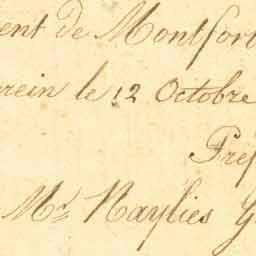 ent de Montfort
rein le 12 Octobre
Pref
Mr Naylies G